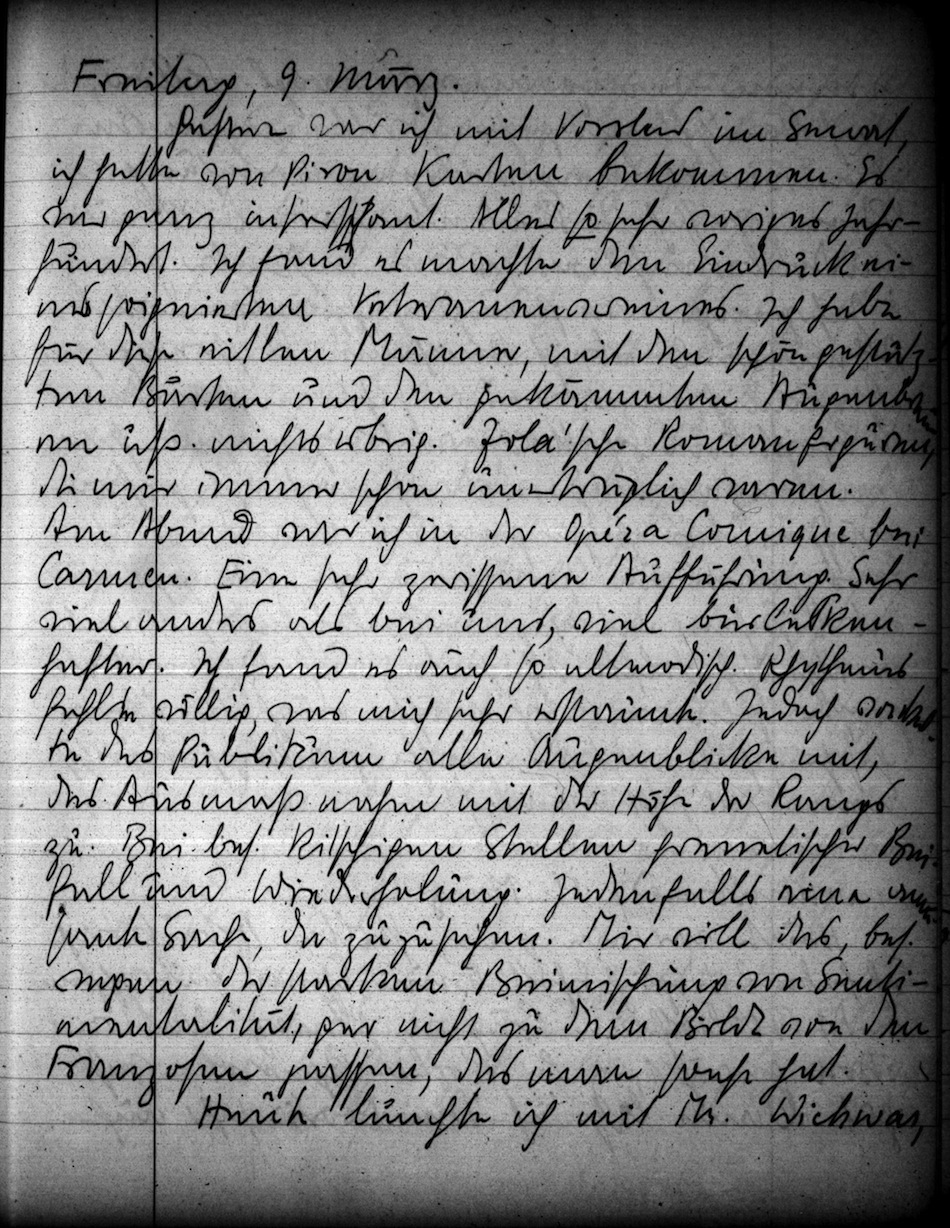 Freitag, 9. März.
Gestern war ich mit Vorslund im Senat,
ich hatte von Piron Karten bekommen. Es
war ganz interessant. Alles so sehr voriges Jahr-
hundert. Ich fand es machte den Eindruck ei-
nes soignierten Veteranenvereines. Ich habe
für diese eitlen Männer, mit den schön gestutz-
ten Bärten und den gekämmten Augenbrau
en äuß. nichts übrig. Zola'sche Romanfiguren,
die mir immer schon unerträglich waren.
Am Abend war ich in der Opéra Comique bei
Carmen. Eine sehr zerissene Aufführung. Sehr
viel anders als bei uns, viel burlesken-
hafter. Ich fand es auch so altmodisch. Rhythmus
fehlte völlig, was mich sehr erstaunte. Jedoch
te das Publikum alle Augenblicke mit,
das Ausmaß nahm mit der Höhe der Rangs
zu. Bei bes. kitschigen Stellen frenetischer Bei-
fall und Wiederholung. Jedenfalls eine amü-
sante Sache, da zuzusehen. Mir will das, bes.
wegen der starken Beimischung von Senti-
mentalität, gar nicht zu dem Bilde von den
Franzosen passen, das man sonst hat.
Heute lunchte ich mit Mr. Wickwar,